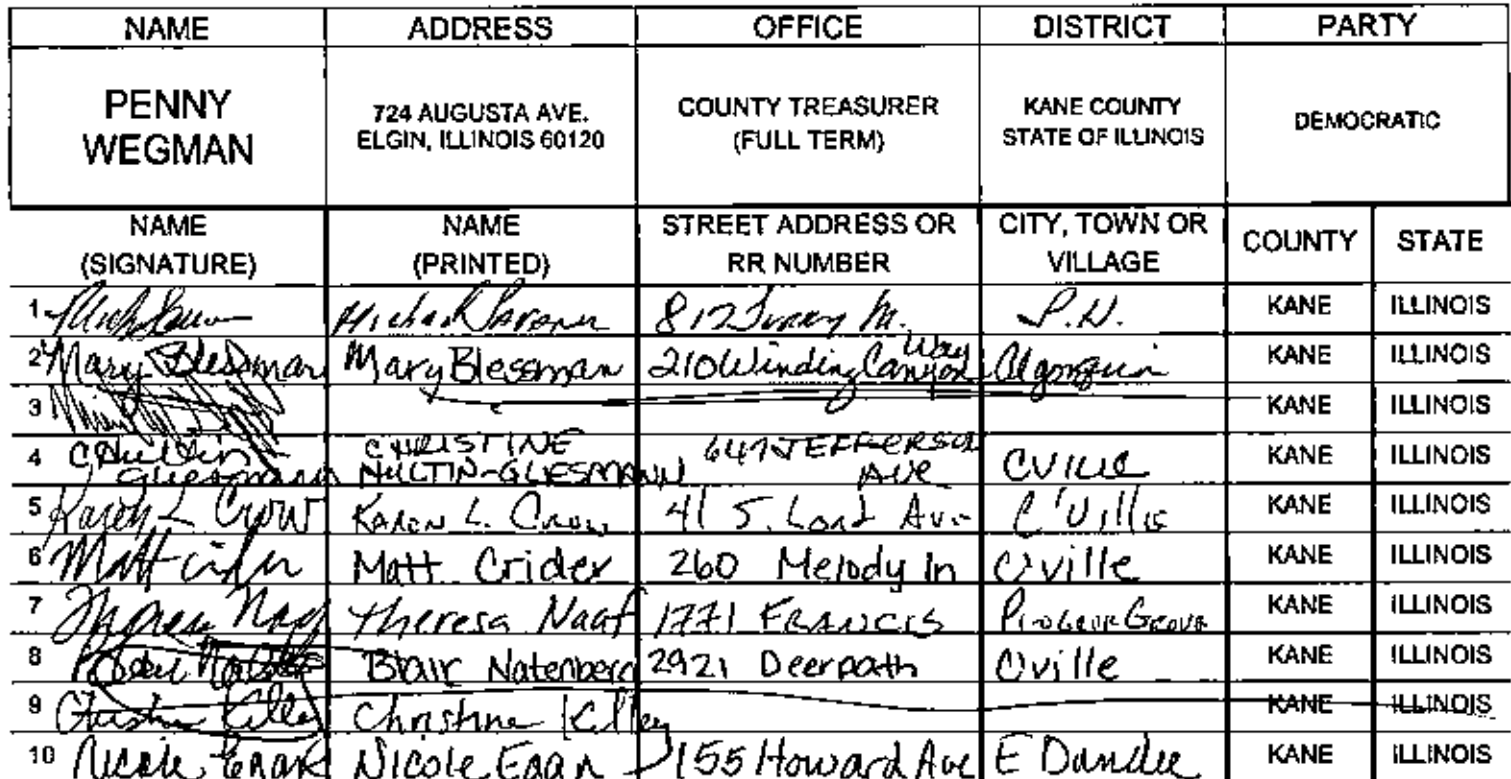 NAME ADDRESS OFFICE DISTRICT PARTY
PENNY WEGMAN 724 AUGUSTA AVE. ELGIN, ILLINOIS 60120 COUNTY TREASURER (FULL TERM) KANE COUNTY STATE OF ILLINOIS DEMOCRATIC
NAME (SIGNATURE) NAME (PRINTED) STREET ADDRESS OR RR NUMBER CITY, TOWN OR VILLAGE COUNTY STATE
1 812 KANE ILLINOIS
2 Mary Blessman Mary Blessman 210 Winding Canyon Way Algonquin KANE ILLINOIS
3 KANE ILLINOIS
4 CHultin Gliesmann CHRISTINE HULTIN-GLIESMANN 647 JEFFERSON AVE CVILLE KANE ILLINOIS
5 Karen L Crow Karen L. Crow 41 S. Lord Ave C'Ville KANE ILLINOIS
6 Matt Crider Matt Crider 260 Melody ln C'ville KANE ILLINOIS
7 Theresa Naaf Theresa Naaf 1771 FRANCIS KANE ILLINOIS
8 Blair Natenberg 2921 Deerpath C'ville KANE ILLINOIS
9 Christine Killey Christine Killey KANE ILLINOIS
10 Nicole Egan Nicole Egan 155 Howard Ave E Dundee KANE ILLINOIS